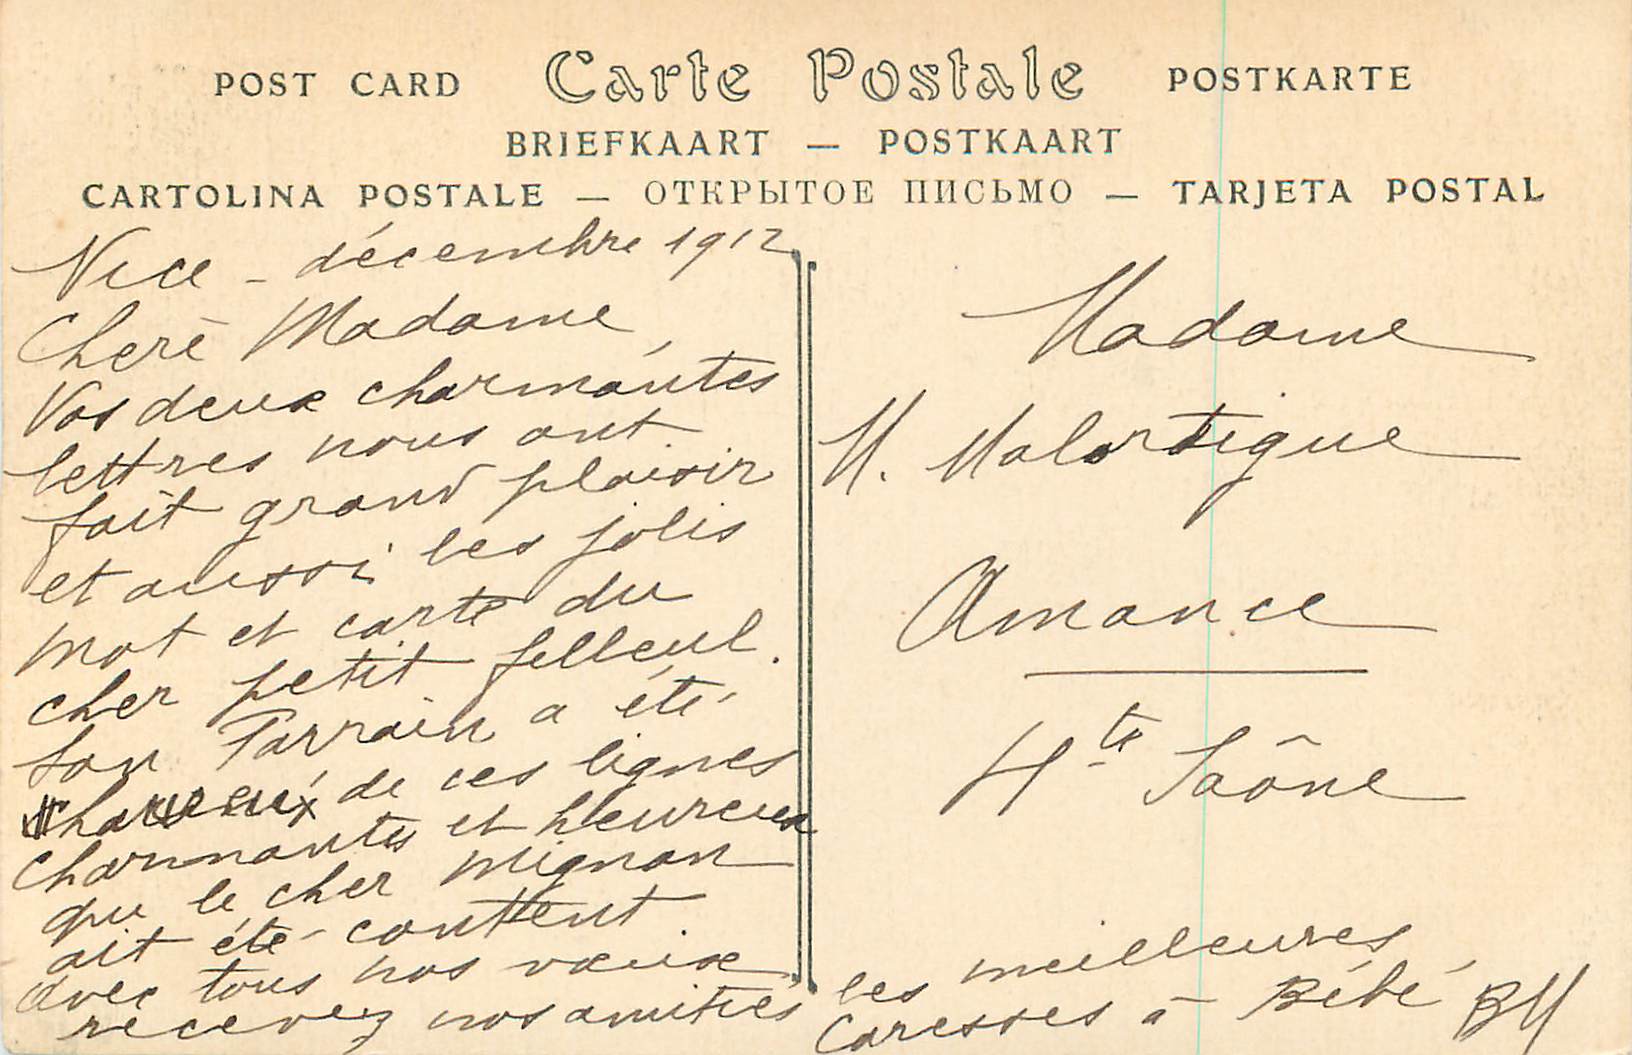 POST CARD Carte Postale POSTKARTE
BRIEFKAART — POSTKAART
CARTOLINA POSTALE — ОТКРЫТОЕ ПИСЬМО — TARJETA POSTAL
Nice - décembre 1912
Chere Madame,
Vos deux charmantes
lettres nous ont
fait grand plaisir
et aussi les jolis
mot et carte du
cher petit filleul.
Son Parrain a été
de ces lignes
charmantes et heureux
que le cher mignon
ait été content
avec tous nos vœux
recevez nos amitiés
Madame
M. Malartigue
Amance
Hte Saône
les meilleures
Caresses à Bébé BM